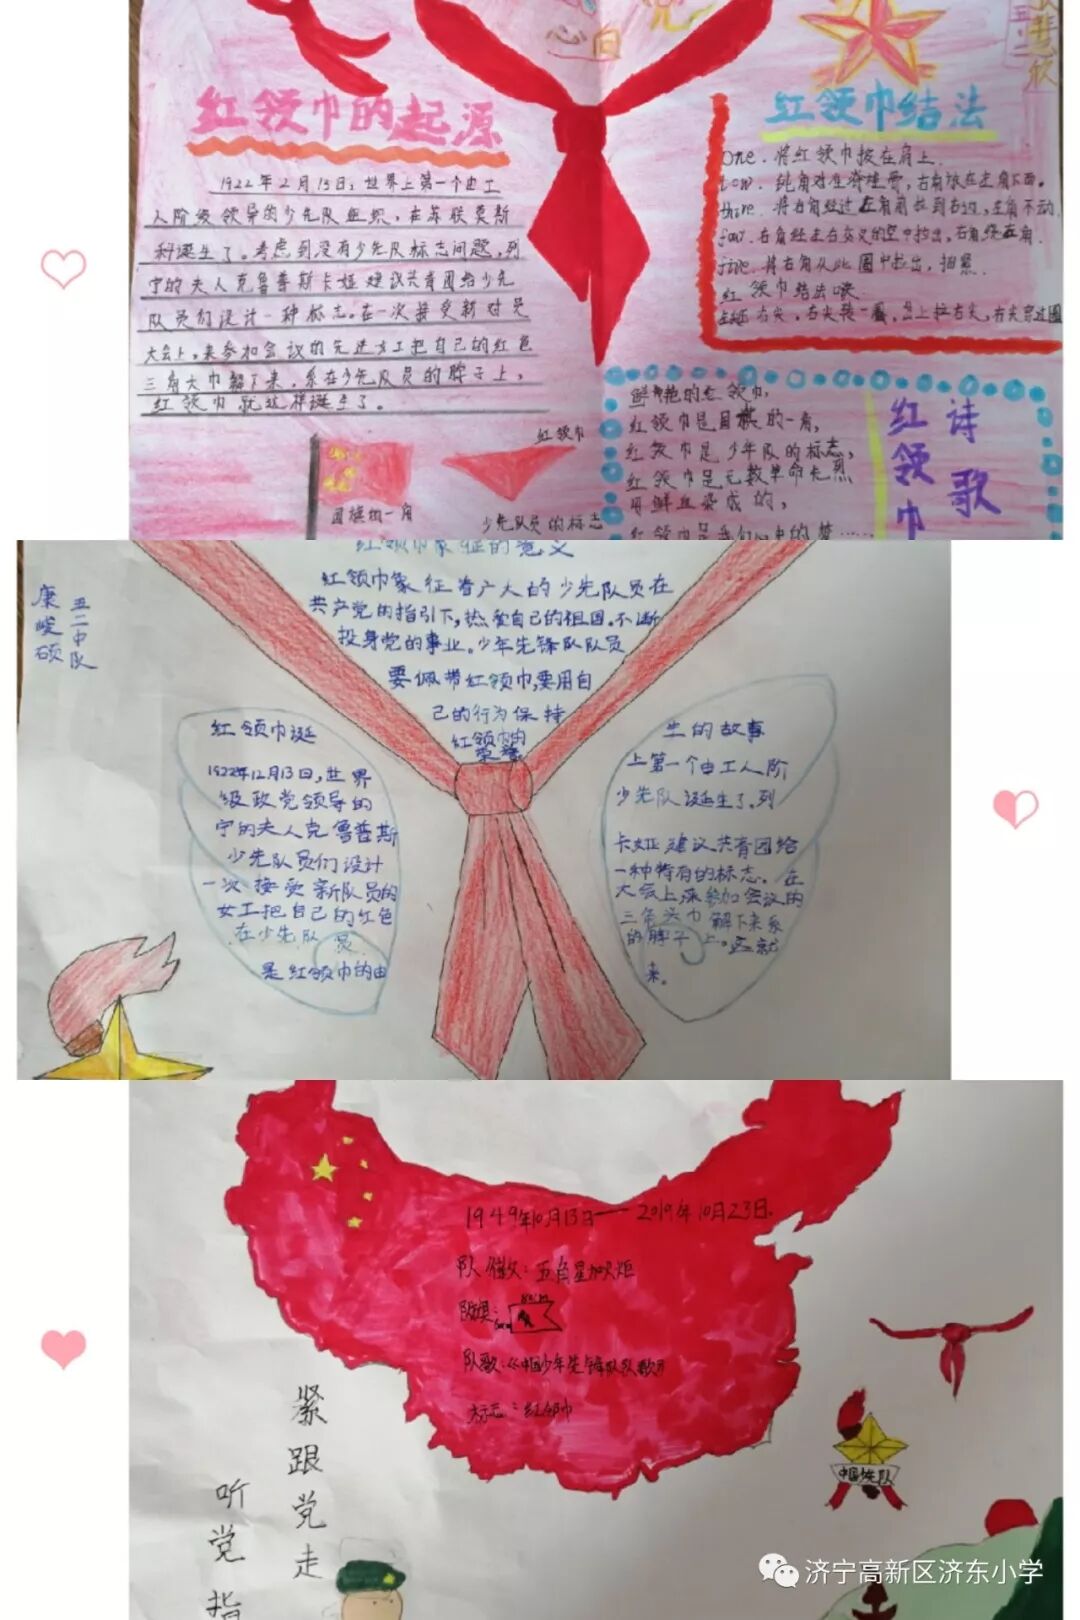 心
红领巾的起源
1922年2月13日，世界上第一个由工
人阶级领导的少先队组织，在苏联莫斯
科诞生了。考虑到没有少先队标志问题，列
宁的夫人克鲁普斯卡娅建议共青团给少先
队员们设计一种标志。在一次接受新对员
大会上，来参加会议的先进女工把自己的红色
三角大巾解下来，系在少先队员的脖子上，
红领巾就这样诞生了。
红领巾结法
one. 将红领巾披在肩上.
tow. 钝角对准脊椎骨，右角放在左角下面。
three. 将右角经过左角前拉到右边，左角不动
four. 右角经左右交叉的空中拉出，右角绕左角.
five. 将右角从此圈中拉出，抽紧.
红领巾结法嗯：
右尖，右尖转一圈，上拉右尖，右尖穿过圈
国旗的一角
红领巾
少先队员的标志
鲜艳的红领巾，
红领巾是国旗的一角，
红领巾是少年队的标志，
红领巾是无数革命先烈
用鲜血染成的，
红领巾是我们心中的梦……
红领巾
诗歌
红领巾象征的意义
红领巾象征着广大的少先队员在
共产党的指引下，热爱自己的祖国。不断
投身党的事业。少年先锋队队员
要佩带红领巾，要用自
己的行为保持
红领巾的
荣誉
五二中队
康峻硕
红领巾诞
1922年12月13日，世界
级政党领导的
宁的夫人克鲁普斯
少先队员们设计
一次接受新队员的
女工把自己的红色
在少先队员
是红领巾的由
生的故事
上第一个由工人阶
少先队诞生了。列
卡娅建议共青团给
一种特有的标志。在
大会上来参加会议的
三角头巾解下来系
的脖子上。这就
来。
1949年10月13日——2019年10月23日.
队徽：五角星加火炬
队旗：
80cm
60cm
队歌：《中国少年先锋队队歌》
标志：红领巾
中国少先队
紧跟党走
听党指
济宁高新区济东小学